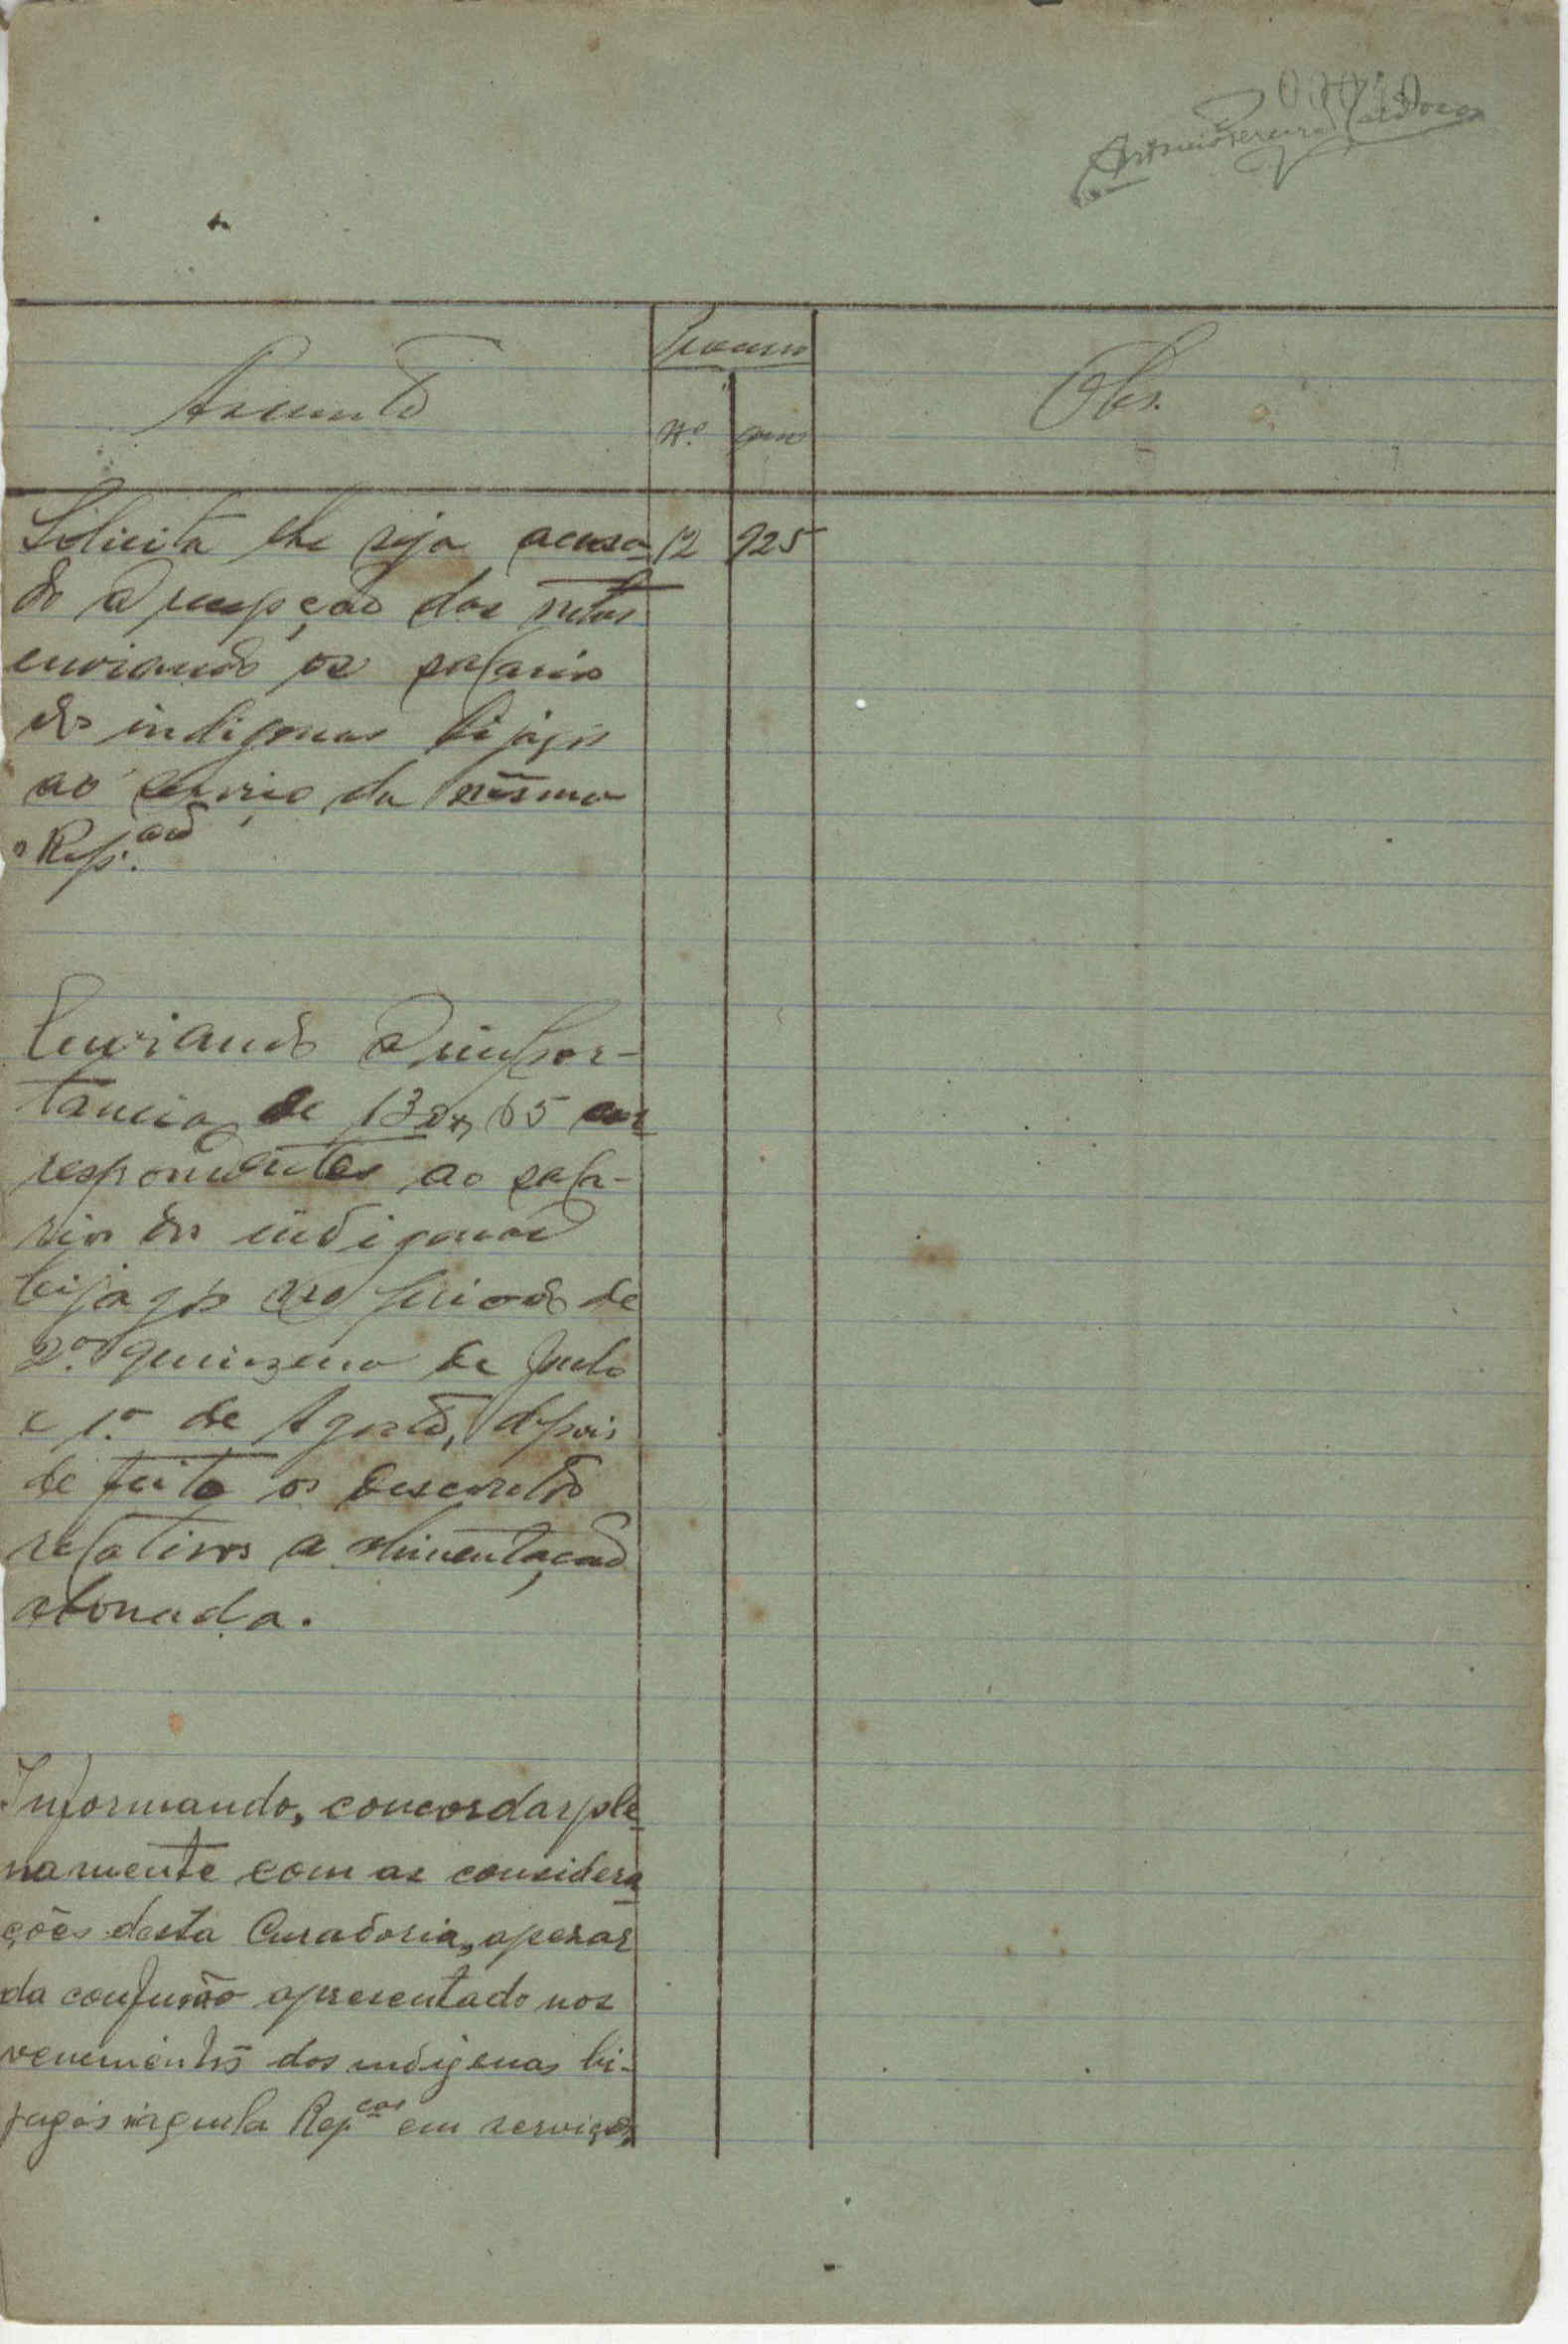 Antonio Pereira Cardoso
Assunto
Processo
Obs.
Nº ano
Solicita lhe seja acusa- 12 925
do a recepção das notas
enviando os salarios
dos indigenas bijagós
ao serviço da mêsma
Rep.ção
Enviando a impor-
tancia de 65 cor
respondentes ao sala-
rio dos indigenas
bijagós no periodo de
2.ª quinzena de Julho
e 1.ª de Agosto, depois
de feito os descontos
relativos a alimentação
abonada.
Informando, concordar ple
namente com as considera
ções desta Curadoria, apezar
da confusão apresentado nos
vencimentos dos indigenas bi-
jagós n'aquela Rep.ção em serviços,